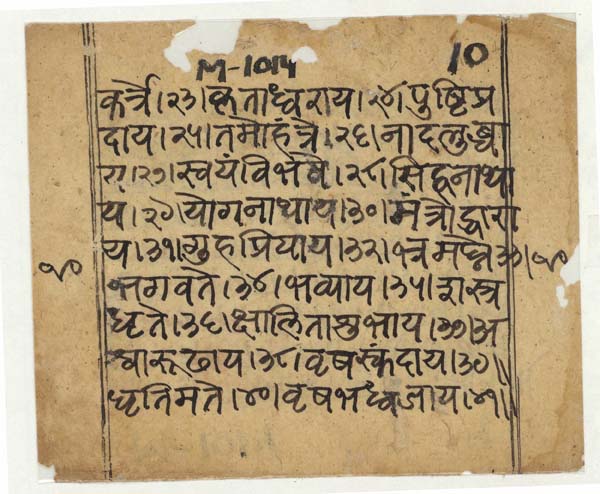 M-1014 10
कर्त्रे।२३।कृताध्वराय।२४।पुष्टिप्र
दाय।२५।तमोहंत्रे।२६।नादलुब्धा
य।२७।स्वयंविभवे।२८।सिद्धनाथा
य।२९।योगनाथाय।३०।मंत्रोद्धारा
य।३१।गुहप्रियाय।३२।भ्रमघ्ने३३।
भगवते।३४।भव्याय।३५।शस्त्र
धृते।३६।क्षालिताशुभाय।३७।अ
श्वारूढाय।३८।वृषस्कंदाय।३९॥
धृतिमते।४०।वृषभध्वजाय।४१॥